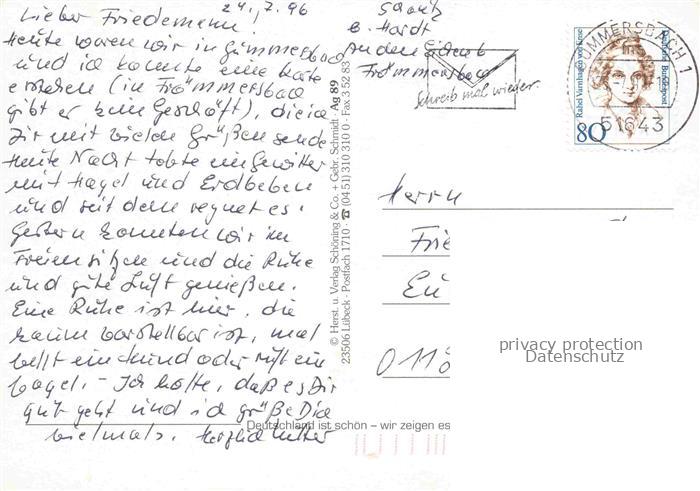 24. 7. 96
Lieber Friedemann!
Heute waren wir in Gummersbach
und ich konnte eine Karte
erstehen (in Frömmersbach
gibt es kein Geschäft), die ich
Dir mit vielen Grüßen sende
Heute Nacht tobte ein Gewitter
mit Hagel und Erdbeben
und seit dem regnet es.
Gestern konnten wir im
Freien sitzen und die Ruhe
und gute Luft genießen.
Eine Ruhe ist hier, die
kaum vorstellbar ist, mal
bellt ein Hund oder ruft ein
Vogel. - Ich hoffe, daß es Dir
gut geht und ich grüße Dich
vielmals. Herzlich Mutter
© Herst. u. Verlag Schöning & Co. + Gebr. Schmidt · Ag 89
23506 Lübeck · Postfach 1710 · ☎ (04 51) 310 310 0 · Fax 3 52 83
Deutschland ist schön – wir zeigen es
b. Hardt
An den
Frömmersbach
Schreib mal wieder.
GUMMERSBACH 1
51643
Rahel Varnhagen von Ense
Deutsche Bundespost
80
Herrn
Frie
Eu
011
privacy protection
Datenschutz